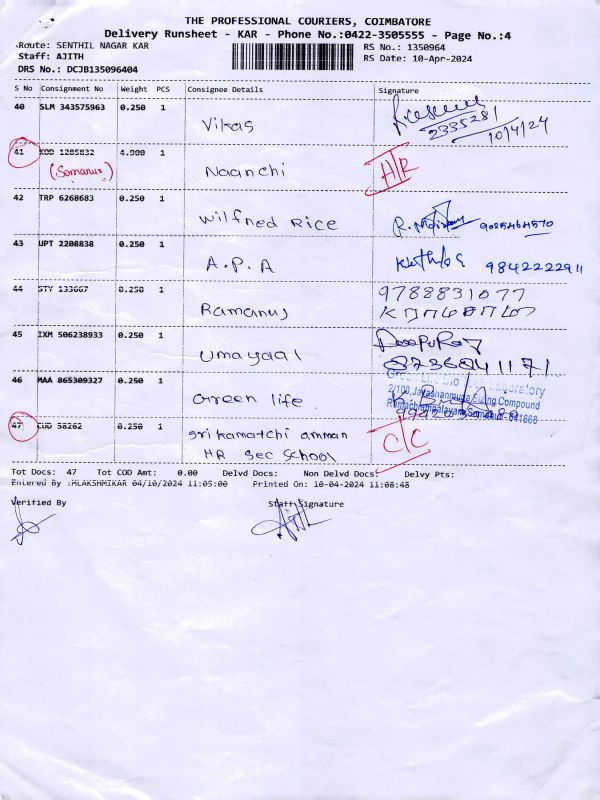 THE PROFESSIONAL COURIERS, COIMBATORE
Delivery Runsheet - KAR - Phone No.:0422-3505555 - Page No.:4
Route: SENTHIL NAGAR KAR
RS No.: 1350964
Staff: AJITH
RS Date: 10-Apr-2024
DRS No.: DCJB135096404
S No Consignment No Weight PCS Consignee Details Signature
40 SLM 343575963 0.250 1 Vikas 2335281 10/4/24
41 KOD 1285832 4.900 1 Naanchi H/R
(Somanus)
42 TRP 6268683 0.250 1 Wilfned Rice
43 UPT 2208838 0.250 1 A.P.A 9842222911
44 STY 133667 0.250 1 Ramanuj 9788831077
45 IXM 506238933 0.250 1 Umayaal
46 MAA 865309327 0.250 1 Green life
47 CUD 58262 0.250 1 Sri Kamatchi amman C/C
HR Sec School
Tot Docs: 47 Tot COD Amt: 0.00 Delvd Docs: Non Delvd Docs: Delvy Pts:
Entered By :MLAKSHMIKAR 04/10/2024 11:05:00 Printed On: 10-04-2024 11:08:48
Verified By Staff Signature